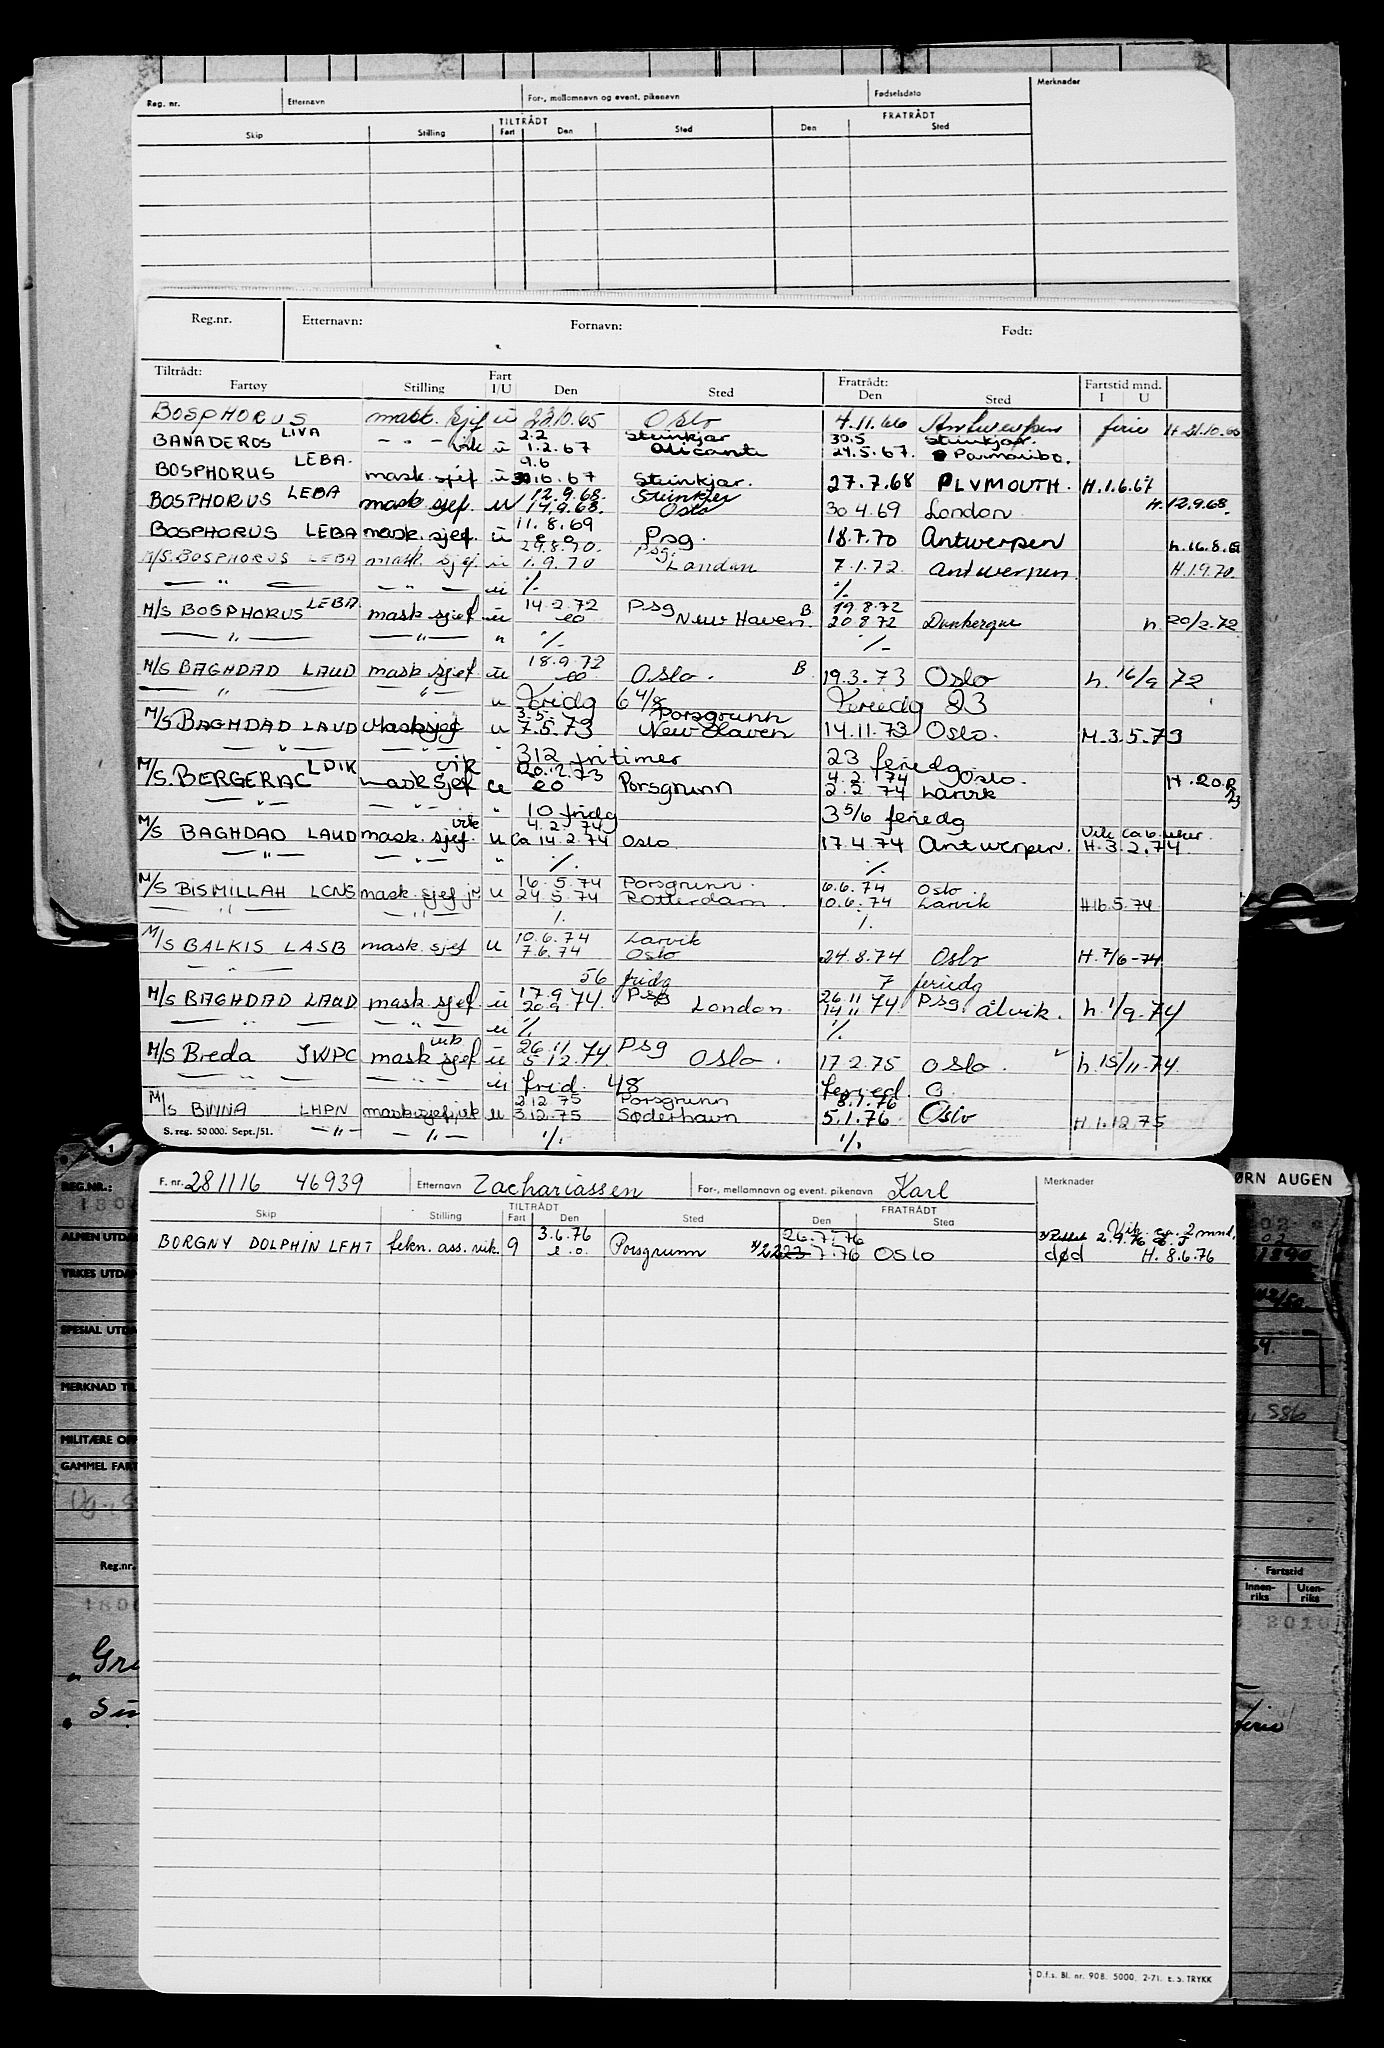 Reg. nr. Etternavn For-, mellomnavn og event. pikenavn Fødselsdato Merknader
TILTRÅDT FRATRÅDT
Skip Stilling Fart Den Sted Den Sted
Reg.nr. Etternavn: Fornavn: Født:
Tiltrådt: Fart Fratrådt: Fartstid mnd.
Fartøy Stilling I/U Den Sted Den Sted I U
BOSPHORUS mask. sjef u 22.10.65 Oslo 4.11.66 Antwerpen ferie H 21.10.65
LIVA 2.2 Steinkjær 30.5 Steinkjær.
BANADEROS — " — vik u 1.2.67 Alicante 24.5.67. Parmaribo.
LEBA. 9.6
BOSPHORUS mask. sjef. u 10.67 Steinkjær. 27.7.68 PLYMOUTH. H.1.6.67
12.9.68. Steinkjer
BOSPHORUS LEBA mask sjef. u 14.9.68. Oslo 30 4.69 London H.12.9.68.
11.8.69
BOSPHORUS LEBA mask. sjef. u e o Psg. 18.7.70 Antwerpen h.16.8.69
29.8.70. Psg.
M/S. BOSPHORUS LEBA mask. sjef. u 1.9.70 London 7.1.72. Antwerpen H.1.9.70.
— " — — " — u ·/. ·/.
LEBA 14.2.72 Psg B 19.8.72
M/S BOSPHORUS mask sjef u eo New Haven. 20 8 72 Dunkerque h. 20/2.72
— " — — " — " ·/. ·/.
18.9.72
M/S BAGHDAD LAUD mask. sjef. u eo Oslo. B 19.3.73 Oslo h. 16/9 72
— " — — " — u Feridg 6 4/8 Feriedg 23
3.5. Porsgrunn
M/S BAGHDAD LAUD Masksjef u 7.5.73 New Haven 14.11.73 Oslo. H.3.5.73
— " — — " — " 312 fritimer 23 feriedg
LDIK vik 20.12.73 4.2.74 Oslo.
M/S. BERGERAC Mask sjef u eo Porsgrunn 2.2.74 Larvik H.20.12/73
— " — — " — " 10 fridg 3 5/6 feriedg
vik 4.2.74 Vik ca 6 uker.
M/S BAGHDAD LAUD mask. sjef. u ca 14.2.74 Oslo 17.4.74 Antwerpen. H.3.2.74
— " — — " — " ·/. ·/.
16.5.74 Porsgrunn. 6.6.74 Oslo
M/S BISMILLAH LCNS mask. sjef jr u 24.5.74 Rotterdam. 10.6.74 Larvik H16.5.74
— " — — " — ·/. ·/.
10.6.74 Larvik
M/S BALKIS LASB mask. sjef u 7.6.74 Oslo 24.8.74 Oslo H.7/6-74
— " — 56 fridg 7 feriedg
17.9 Psg 26.11 Psg.
M/S BAGHDAD LAUD mask. sjef. u 20.9.74. London. 14 11 74 Ålvik. h. 1/9.74
— " — — " — u ·/. ·/.
vik 26.11.74 Psg
M/S Breda JWPC mask sjef u 5.12.74. Oslo. 17.2.75 Oslo. h.15/11-74.
— " — — " — u frid. 48 feried. 0.
2.12.75 Porsgrunn 8.1.76
M/S BINNA LHPN masksjefsvik u 3.12.75 Søderhavn 5.1.76. Oslo H.1.12.75
S. reg. 50 000. Sept./51. — " — — " — ·/. ·/.
F. nr. 281116 46939 Etternavn Zachariassen For-, mellomnavn og event. pikenavn Karl Merknader
TILTRÅDT FRATRÅDT
Skip Stilling Fart Den Sted Den Sted
3.6.76 26.7.76 Vik. ca. 2 mnd.
BORGNY DOLPHIN LFHT tekn. ass. vik. 9 e.o. Porsgrunn 22 23.7.76 OSLO død H. 8.6.76
D.f.s. Bl. nr. 908. 5000. 2-71. E.S. TRYKK
ØRN AUGEN
REG.NR.:
ALMEN UTDA
YRKES UTDA
SPESIAL UTDA
MERKNAD TIL
MILITÆRE OPP
GAMMEL FART
Reg.nr.
Fartstid
Innenriks Utenriks
ferie